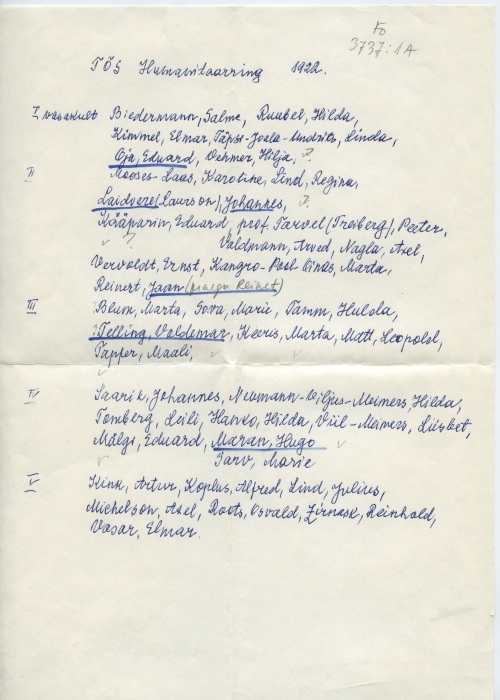 Fo
3737:1A
TÕS Humanitaarring 1922.
I vasakult Biedermann, Salme, Ruubel, Hilda,
Kimmel, Elmar, Täpsi-Joala-Undrits, Linda,
Oja, Eduard, Oehmer, Hilja, ?
II Mooses-Laas, Karoline, Lind, Regina,
Laidvere (Laurson), Johannes, ?
Kääparin, Eduard, prof. Tarvel (Treiberg), Peeter,
? Valdmann, Arved, Nagla, Axel,
Vervoldt, Ernst, Kangro-Pool Marta,
Reinert, Jaan (praegu Reinet)
III Blum, Marta, Sova, Marie, Tamm, Hulda,
Telling, Voldemar, Keeris, Marta, Mutt, Leopold,
Tapper, Maali,
IV Saarik, Johannes, Neumann-Viljus-Meiners, Hilda,
Tomberg, Leili, Hanko, Hilda, Viil-Meiners, Liisbet,
Mälgi, Eduard, Maran, Hugo
Tarv, Marie
V Kink, Artur, Koplus, Alfred, Lind, Julius,
Michelson, Axel, Roots, Osvald, Zirnask, Reinhold,
Vasar, Elmar.